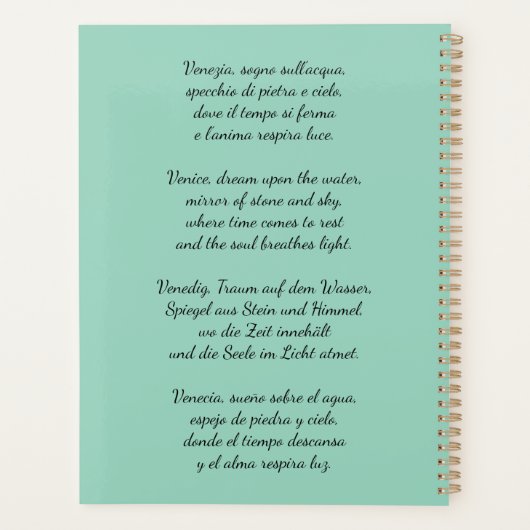 Venezia, sogno sull'acqua,
specchio di pietra e cielo,
dove il tempo si ferma
e l'anima respira luce.
Venice, dream upon the water,
mirror of stone and sky.
where time comes to rest
and the soul breathes light.
Venedig, Traum auf dem Wasser,
Spiegel aus Stein und Himmel,
wo die Zeit innehält
und die Seele im Licht atmet.
Venecia, sueño sobre el agua,
espejo de piedra y cielo,
donde el tiempo descansa
y el alma respira luz.